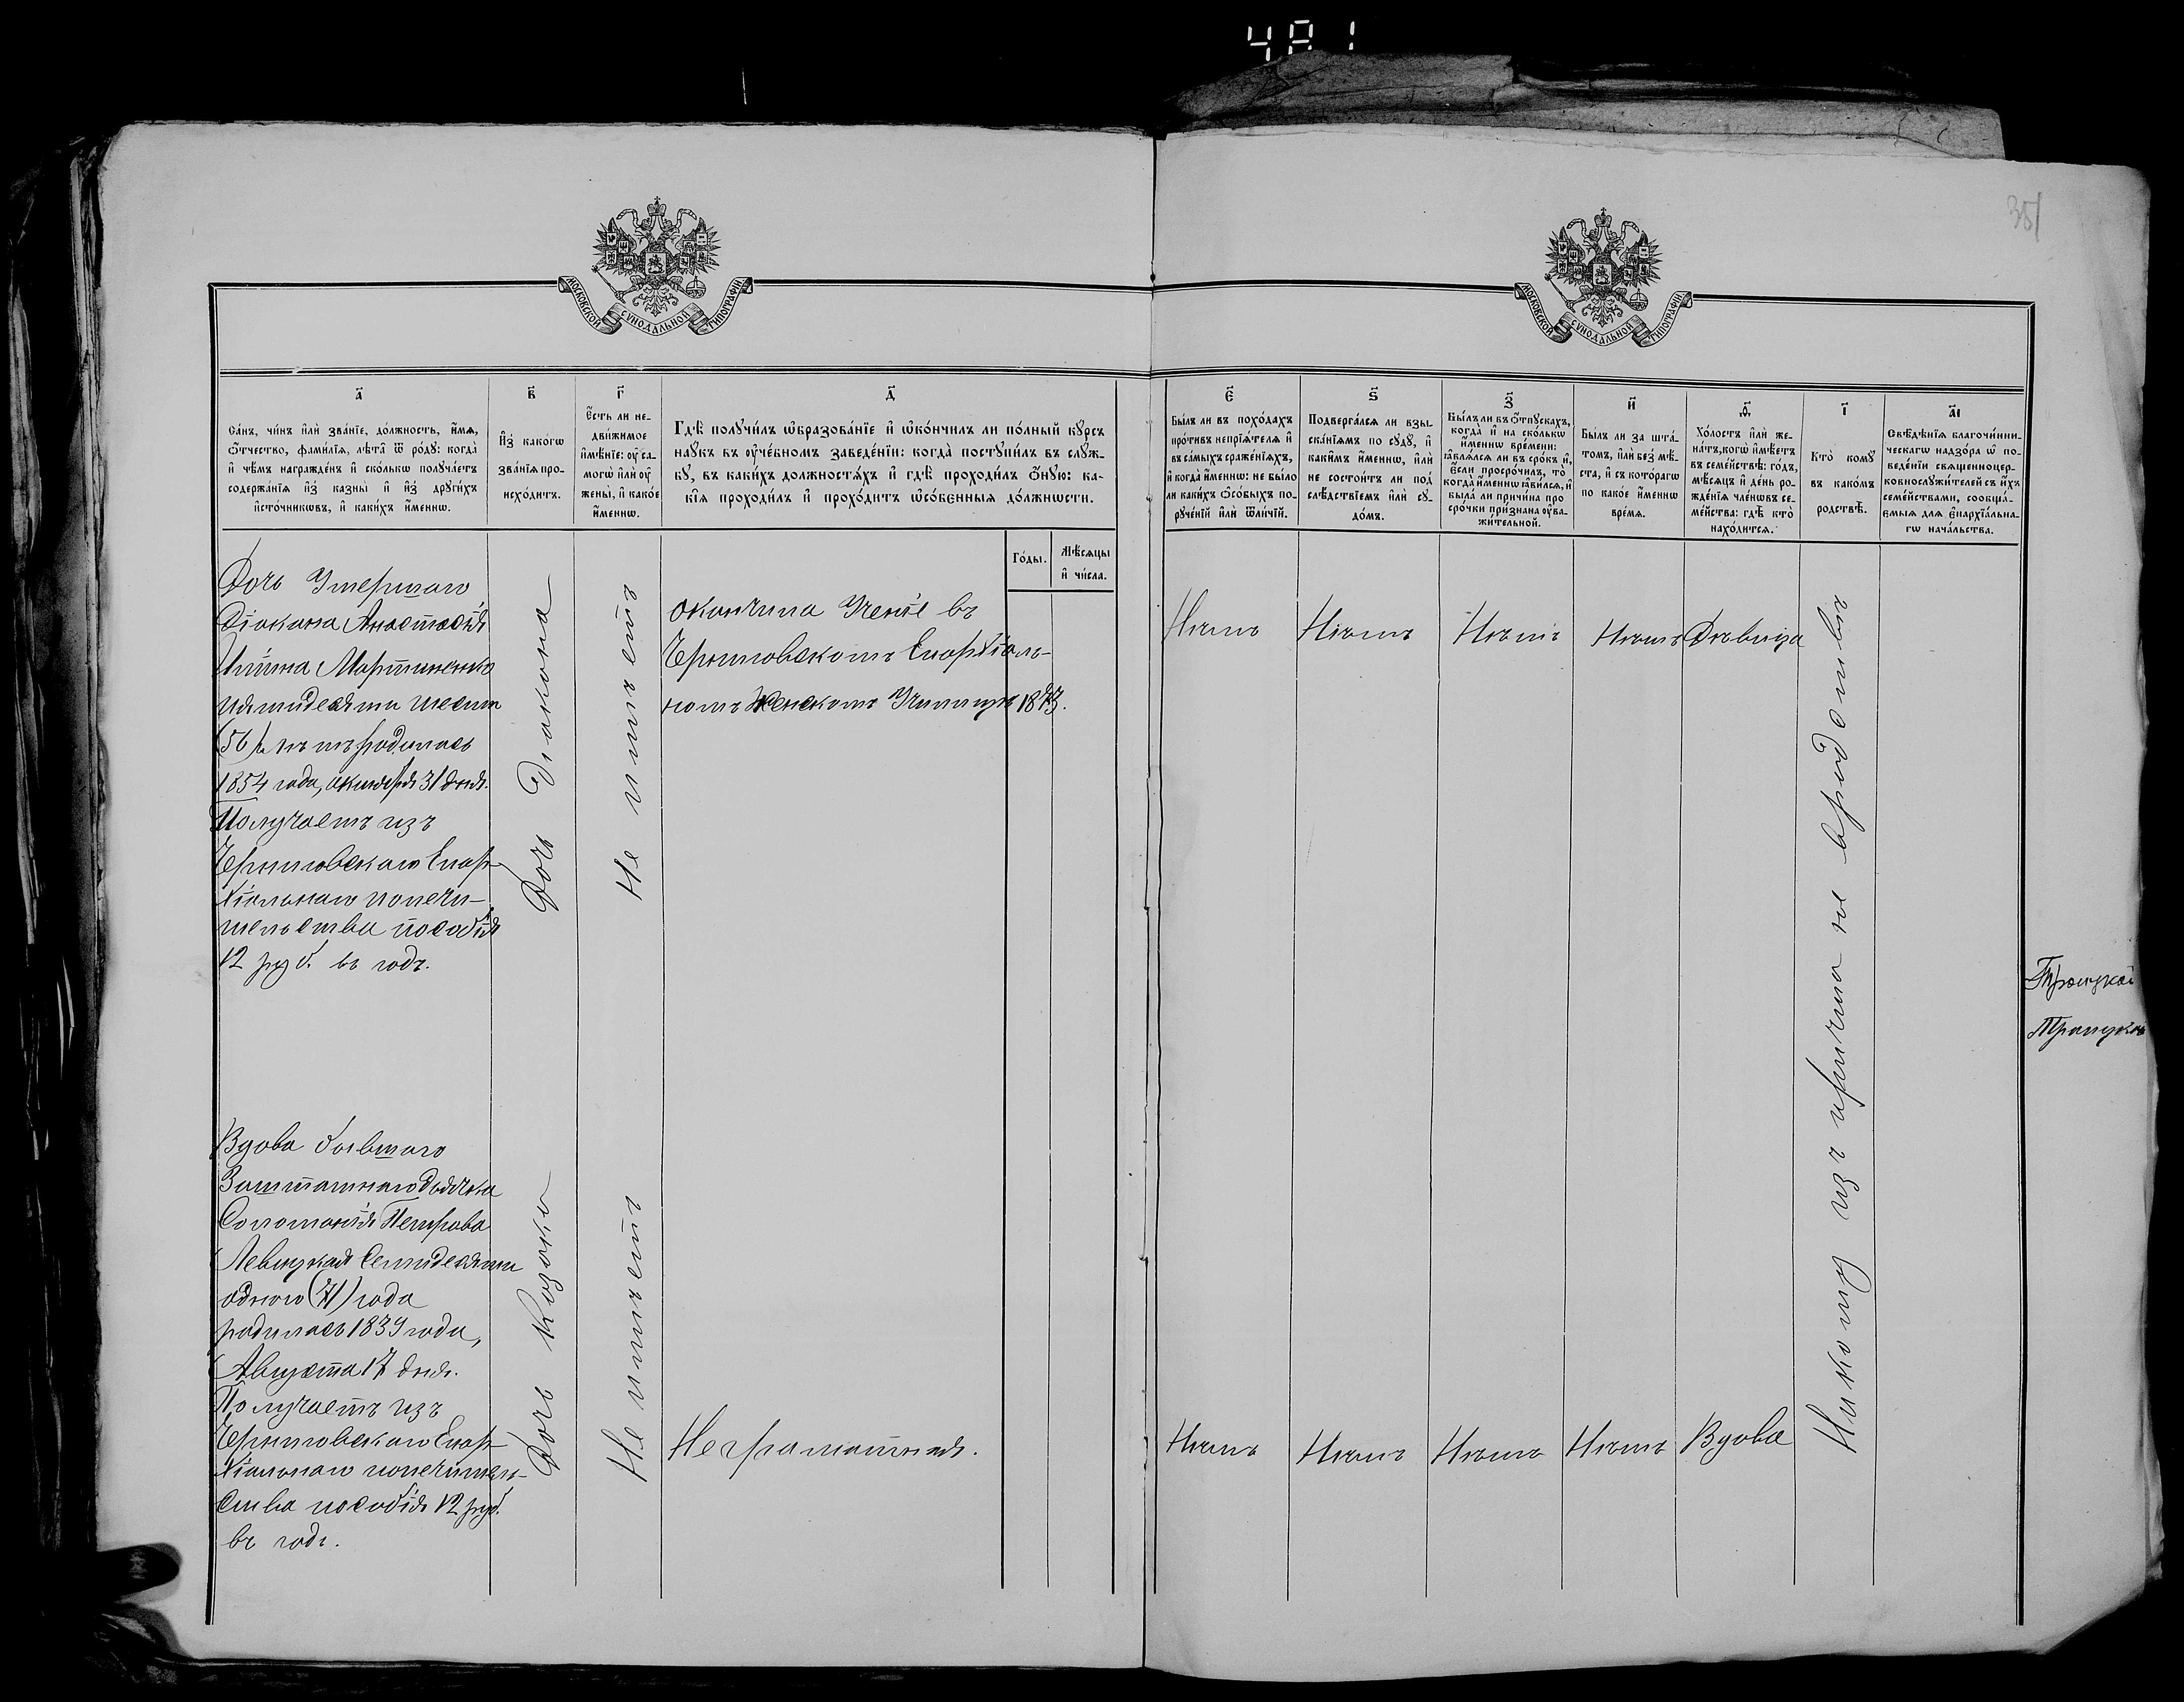 4А1
351
МОСКОВСКОЙ СУНОДАЛЬНОЙ ТИПОГРАФІИ
МОСКОВСКОЙ СУНОДАЛЬНОЙ ТИПОГРАФІИ
а҃
Са́нъ, чи́нъ и҆лѝ зва́нїе, до́лжность, и҆́мѧ,
ѻ҆́тчество, фами́лїѧ, лѣ́та ѿ ро́дꙋ: когда̀
и҆ чѣ́мъ награжде́нъ и҆ ско́лькѡ полꙋча́етъ
содержа́нїѧ и҆з̾ казны̀ и҆ и҆з̾ дрꙋги́хъ
и҆сто́чникѡвъ, и҆ каки́хъ и҆́меннѡ.
в҃
И҆з̾ како́гѡ
зва́нїѧ про-
исхо́дитъ.
г҃
Є҆́сть ли не-
дви́жимое
и҆мѣ́нїе: ᲂу҆ са-
могѡ̀ и҆лѝ ᲂу҆
жены̀, и҆ како́е
и҆́меннѡ.
д҃
Гдѣ̀ полꙋчи́лъ ѡ҆бразова́нїе и҆ ѡ҆ко́нчилъ ли по́лный кꙋ́рсъ
наꙋ́къ въ ᲂу҆че́бномъ заведе́нїи: когда̀ постꙋпи́лъ въ слꙋ́ж-
бꙋ, въ каки́хъ должностѧ́хъ и҆ гдѣ̀ проходи́лъ ѻ҆́нꙋю: ка-
кі́ѧ проходи́лъ и҆ прохо́дитъ ѡ҆со́бенныѧ до́лжнѡсти.
Го́ды.
Мѣ́сѧцы
и҆ чи́сла.
є҃
Бы́лъ ли въ похо́дахъ
про́тивъ непрїѧ́телѧ и҆
въ са́мыхъ сраже́нїѧхъ,
и҆ когда̀ и҆́меннѡ: не бы́ло
ли каки́хъ ѻ҆со́быхъ по-
рꙋче́нїй и҆лѝ ѿли́чїй.
ѕ҃
Подверга́лсѧ ли взы-
ска́нїѧмъ по сꙋдꙋ̀, и҆
каки́мъ и҆́меннѡ, и҆лѝ
не состои́тъ ли под̾
слѣ́дствїемъ и҆лѝ сꙋ-
до́мъ.
з҃
Бы́лъ ли въ ѻ҆́тпꙋскахъ,
когда̀ и҆ на ско́лькѡ
и҆́меннѡ вре́мени:
ꙗ҆влѧ́лсѧ ли въ сро́къ и҆,
є҆́сли просро́чилъ, то̀
когда̀ и҆́меннѡ ꙗ҆ви́лсѧ, и҆
была̀ ли причи́на про
сро́чки при́знана ᲂу҆ва-
жи́тельной.
и҃
Бы́лъ ли за шта́-
томъ, и҆лѝ без̾ мѣ́-
ста, и҆ съ кото́рагѡ
по како́е и҆́меннѡ
вре́мѧ.
ѳ҃
Хо́лостъ и҆лѝ же-
на́тъ, когѡ̀ и҆мѣ́етъ
въ семе́йствѣ: го́дъ,
мѣ́сѧцъ и҆ де́нь ро-
жде́нїѧ чле́нѡвъ се-
ме́йства: гдѣ̀ кто̀
нахо́дитсѧ.
і҃
Кто̀ комꙋ̀
въ како́мъ
родствѣ̀.
аі҃
Свѣ́дѣнїѧ благочи́нни-
ческагѡ надзо́ра ѡ҆ по-
веде́нїи свѧщенноцер-
ковнослꙋжи́телей съ и҆́хъ
семе́йствами, сообща́-
ємыѧ для є҆парха́льна-
гѡ нача́льства.
Дочь Умершаго
Діакона Анастасія
Иліина Мартиненко
пятидесяти шести
(56) лѣтъ родилась
1854 года, октября 31 дня.
Получаетъ изъ
Черниговскаго Епар-
хіальнаго попечи-
тельства пособія
12 руб. въ годъ.
Дочь Діакона
Не имѣетъ
окончила Ученіе въ
Черниговскомъ Епархіаль-
номъ Женскомъ Училищѣ 1873.
Нѣтъ
Нѣтъ
Нѣтъ
Нѣтъ
Дѣвица
Никому изъ причта не въ родствѣ
Троицкой
Троицкой
Вдова бывшаго
Заштатнаго Дьячка
Соломонія Петрова
Левицкая Семидесяти
одного (71) года
родилась 1839 года,
Августа 17 дня.
Получаетъ изъ
Черниговскаго Епар-
хіальнаго попечитель-
ства пособія 12 руб.
въ годъ.
Дочь Козака
Не имѣетъ
Неграмотная.
Нѣтъ
Нѣтъ
Нѣтъ
Нѣтъ
Вдова